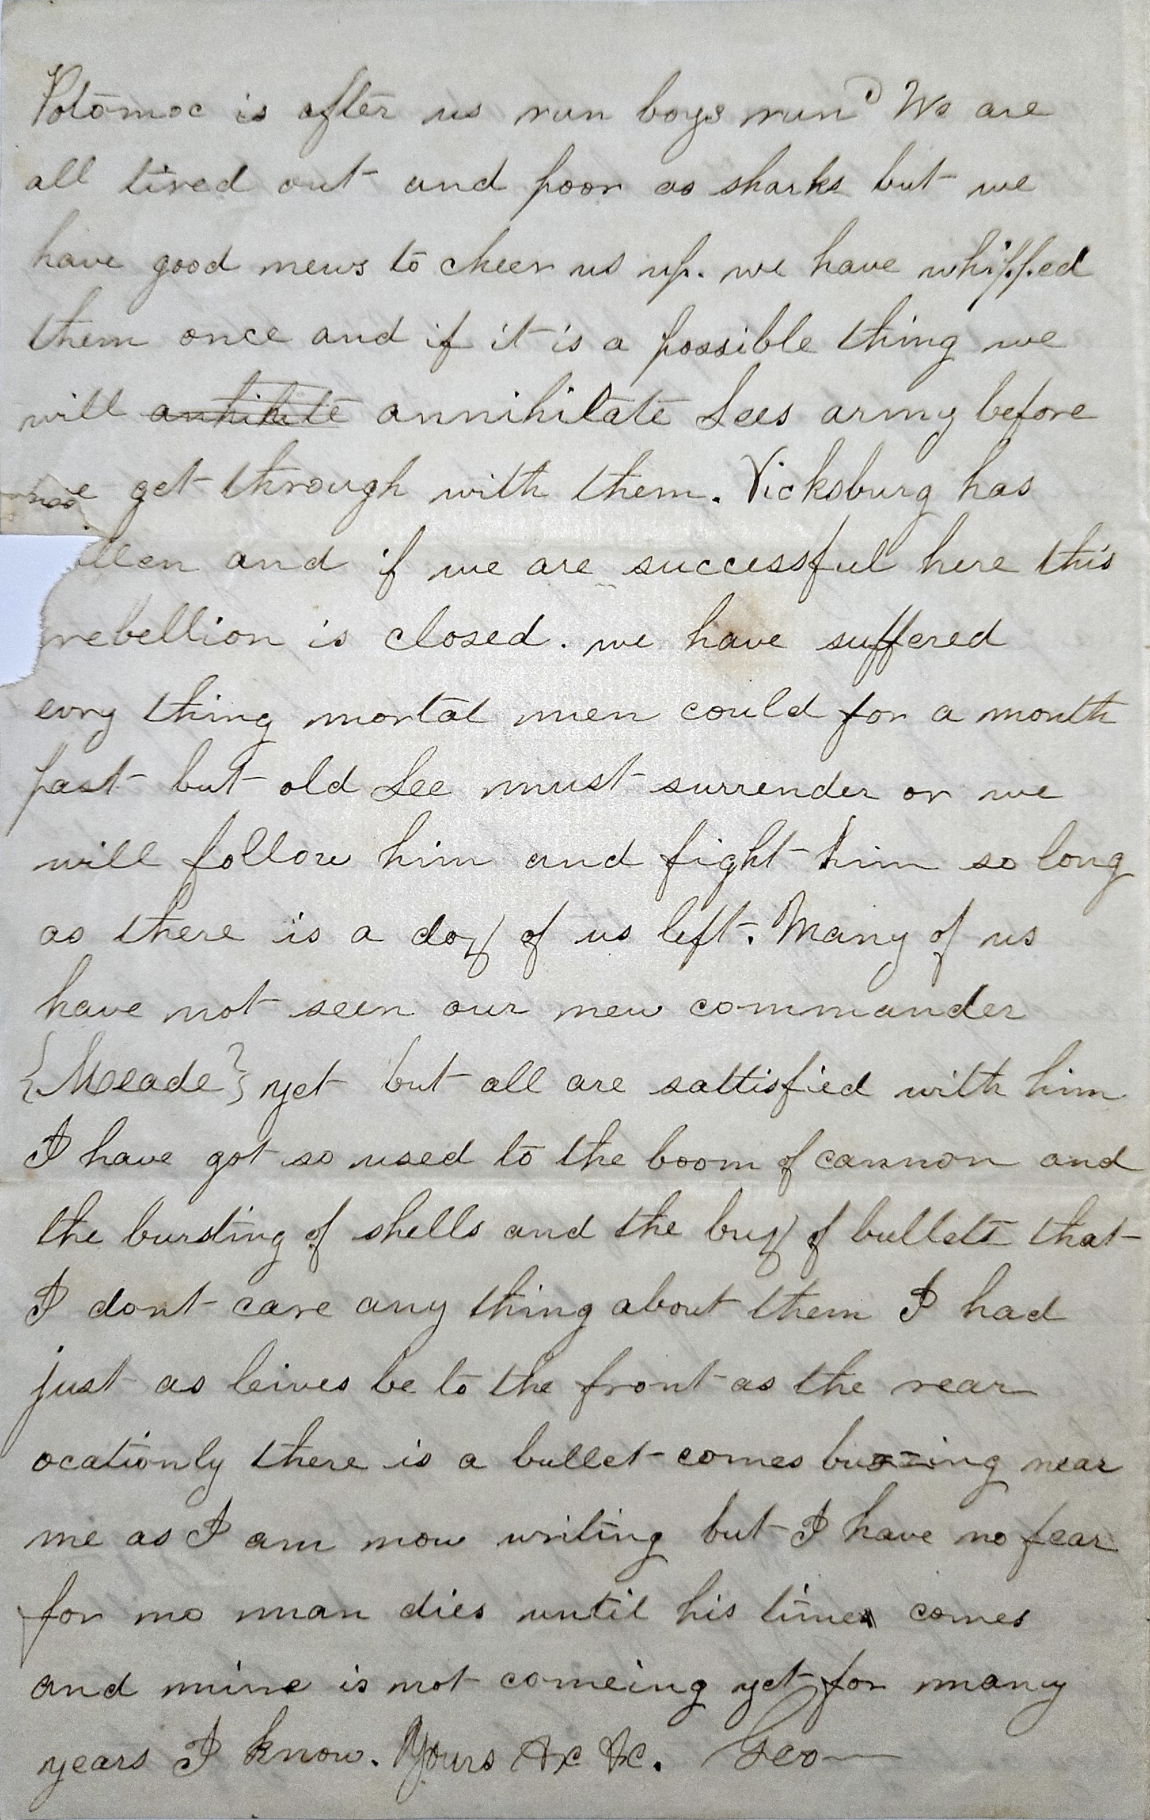 Potomoc is after us run boys run" We are
all tired out and poor as sharks but we
have good news to cheer us up. we have whipped
them once and if it is a possible thing we
will anhilite annihilate Lees army before
we get through with them. Vicksburg has
llen and if we are successful here this
rebellion is closed. we have suffered
evry thing mortal men could for a month
past but old Lee must surrender or we
will follow him and fight him so long
as there is a doz of us left. Many of us
have not seen our new commander
{Meade} yet but all are sattisfied with him
I have got so used to the boom of cannon and
the bursting of shells and the buz of bullets that
I dont care any thing about them I had
just as leives be to the front as the rear
ocationly there is a bullet comes buzzing near
me as I am now writing but I have no fear
for no man dies until his time comes
and mine is not comeing yet for many
years I know. Yours &c &c. Geo